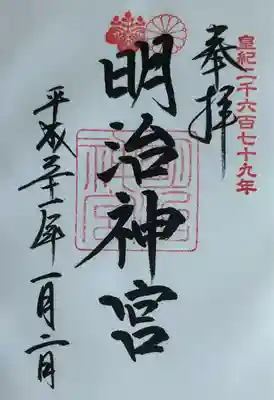 皇紀二千六百七十九年
奉拝
明治神宮
平成三十一年一月二日